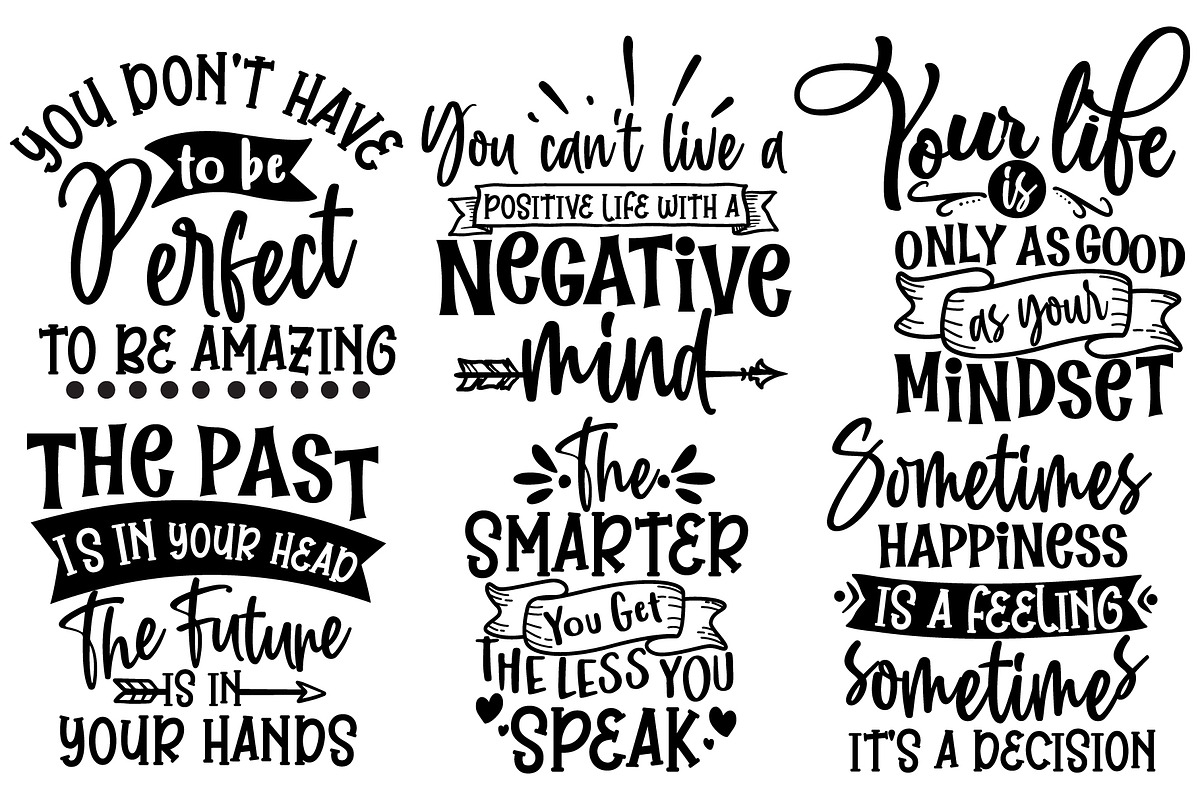 YOU DON'T HAVE
to be
Perfect
TO BE AMAZING
You can't live a
POSITIVE LIFE WITH A
NEGATIVE
mind
Your life
is
ONLY AS GOOD
as your
MINDSET
THE PAST
IS IN YOUR HEAD
The Future
IS IN
YOUR HANDS
The
SMARTER
You Get
THE LESS YOU
SPEAK
Sometimes
HAPPINESS
IS A FEELING
sometimes
IT'S A DECISION